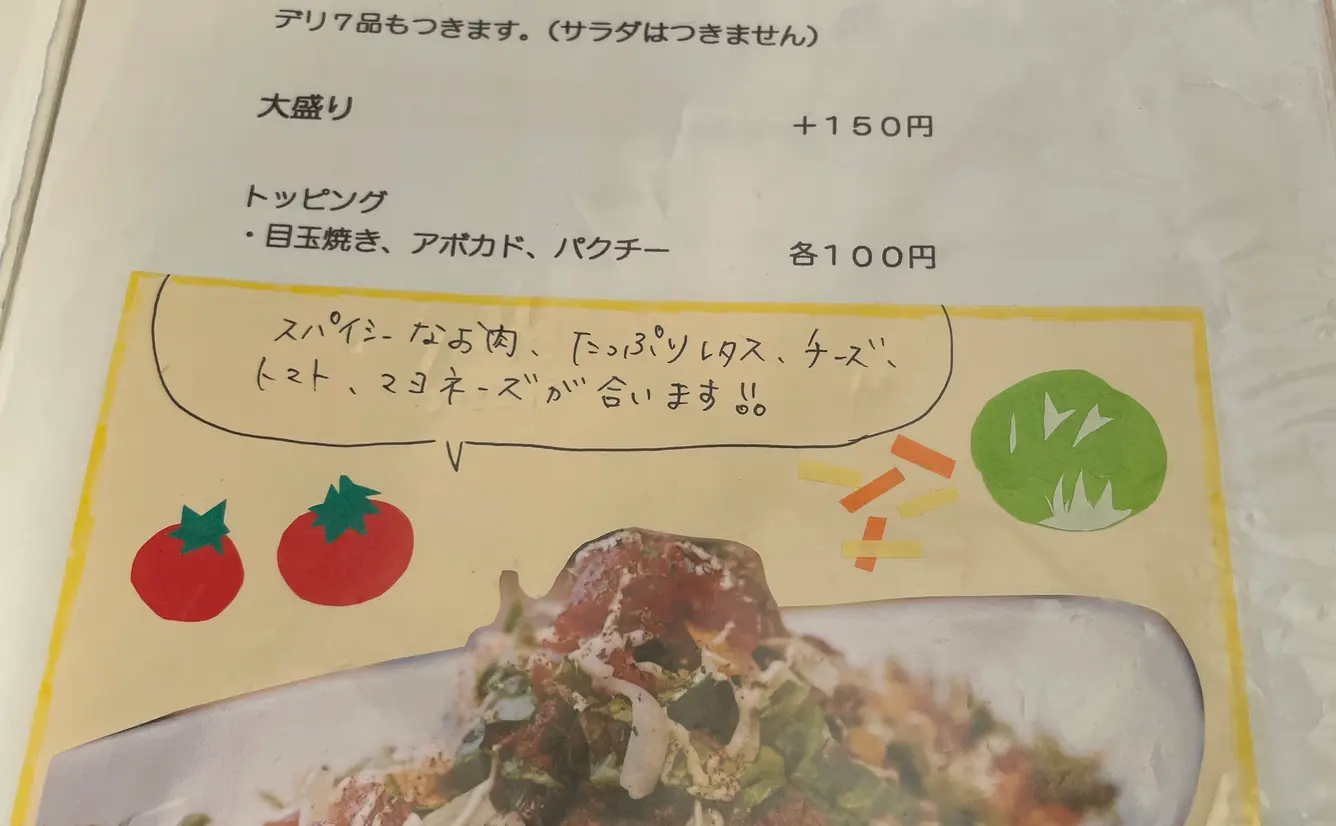 デリ７品もつきます。（サラダはつきません）
大盛り
＋１５０円
トッピング
・目玉焼き、アボカド、パクチー
各１００円
スパイシーなお肉、たっぷりレタス、チーズ、
トマト、マヨネーズが合います!!